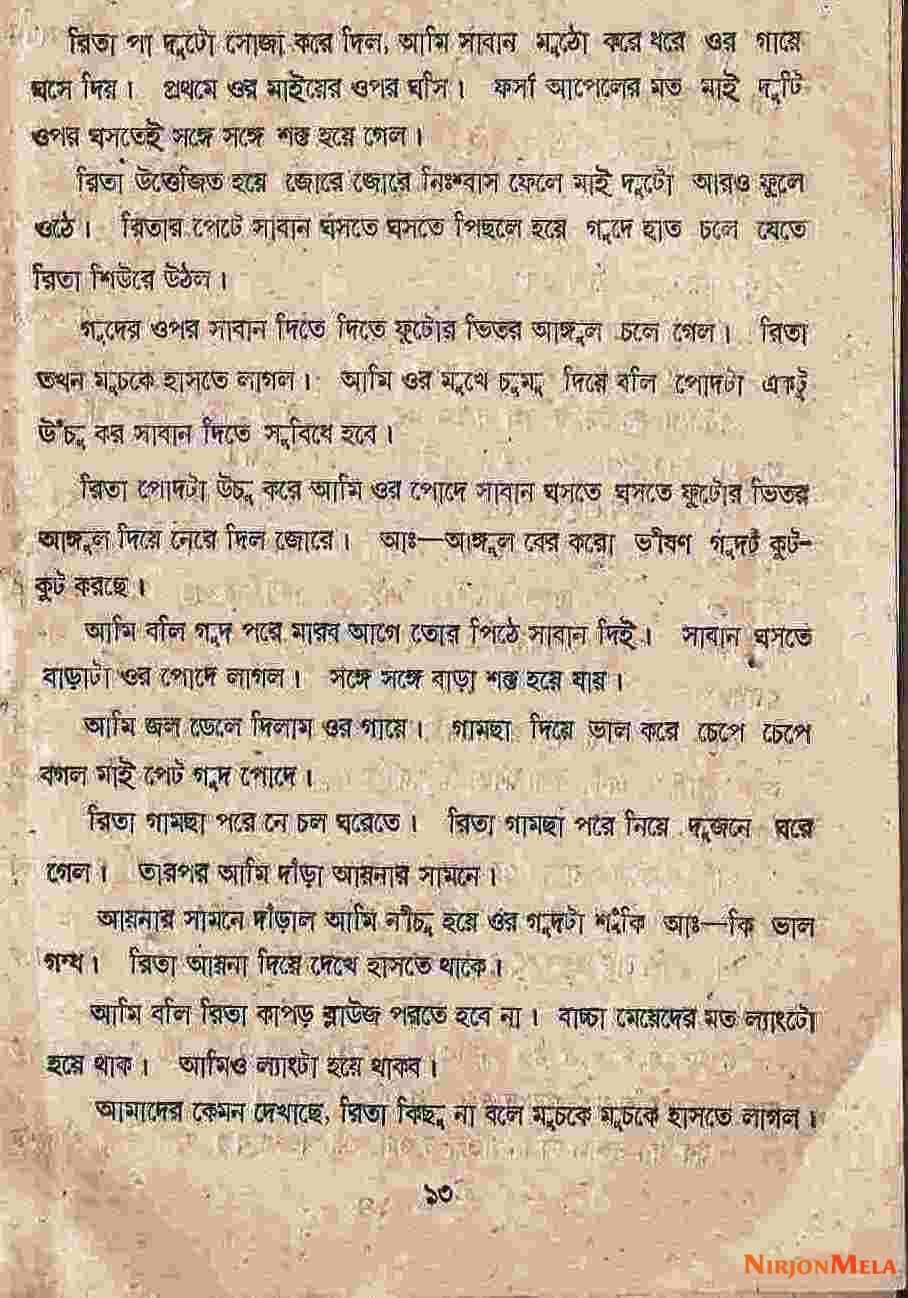 রিতা পা দুটো সোজা করে দিল, আমি সাবান মুঠো করে ধরে ওর গায়ে
ঘসে দিয়। প্রথমে ওর মাইয়ের ওপর ঘসি। ফর্সা আপেলের মত মাই দুটি
ওপর ঘসতেই সঙ্গে সঙ্গে শক্ত হয়ে গেল।
রিতা উত্তেজিত হয়ে জোরে জোরে নিঃশ্বাস ফেলে মাই দুটো আরও ফুলে
ওঠে। রিতার পেটে সাবান ঘসতে ঘসতে পিছলে হয়ে গুদে হাত চলে যেতে
রিতা শিউরে উঠল।
গুদের ওপর সাবান দিতে দিতে ফুটোর ভিতর আঙ্গুল চলে গেল। রিতা
তখন মুচকে হাসতে লাগল। আমি ওর মুখে চুমু দিয়ে বলি পোদটা একটু
উঁচু কর সাবান দিতে সুবিধে হবে।
রিতা পোদটা উচু করে আমি ওর পোদে সাবান ঘসতে ঘসতে ফুটোর ভিতর
আঙ্গুল দিয়ে নেরে দিল জোরে। আঃ—আঙ্গুল বের করো ভীষণ গুদট কুট-
কুট করছে।
আমি বলি গুদ পরে মারব আগে তোর পিঠে সাবান দিই। সাবান ঘসতে
বাড়াটা ওর পোদে লাগল। সঙ্গে সঙ্গে বাড়া শক্ত হয়ে যায়।
আমি জল ঢেলে দিলাম ওর গায়ে। গামছা দিয়ে ভাল করে চেপে চেপে
বগল মাই পেট গুদ পোদে।
রিতা গামছা পরে নে চল ঘরেতে। রিতা গামছা পরে নিয়ে দুজনে ঘরে
গেল। তারপর আমি দাঁড়া আয়নার সামনে।
আয়নার সামনে দাঁড়াল আমি নীচু হয়ে ওর গুদটা শুঁকি আঃ—কি ভাল
গন্ধ। রিতা আয়না দিয়ে দেখে হাসতে থাকে।
আমি বলি রিতা কাপড় ব্লাউজ পরতে হবে না। বাচ্চা মেয়েদের মত ল্যাংটো
হয়ে থাক। আমিও ল্যাংটা হয়ে থাকব।
আমাদের কেমন দেখাছে, রিতা কিছু না বলে মুচকে মুচকে হাসতে লাগল।
১৩
NIRJONMELA